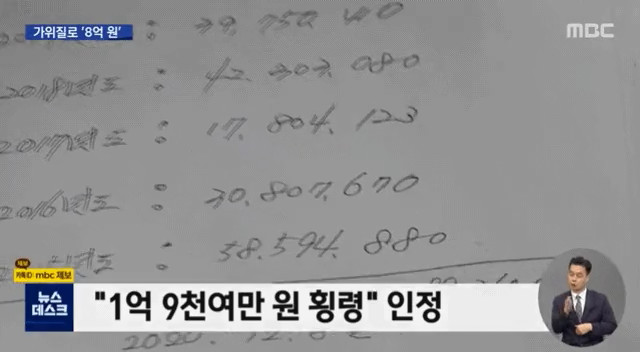 가위질로 '8억 원'
MBC
2018년도 : 42.303.080
2017년도 : 17.804.123
2016년도 : 30.807.670
58.594.880
제보
카톡ID mbc 제보
뉴스
데스크
"1억 9천여만 원 횡령" 인정